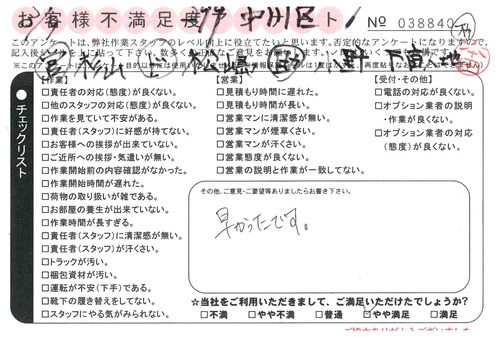 お客様不満足度
ト
№ 038840
中川区
このアンケートは、弊社作業スタッフのレベル向上に役立てたいと思います。否定的なアンケートになりますので、
【作業】
□責任者の対応(態度)が良くない。
□他のスタッフの対応(態度)が良くない。
□作業を見ていて不安がある。
□責任者(スタッフ)に好感が持てない。
□お客様への挨拶が出来ていない。
□ご近所への挨拶・気遣いが無い。
□作業開始前の内容確認がなかった。
□作業開始時間が遅れた。
□荷物の取り扱いが雑である。
□お部屋の養生が出来ていない。
□作業時間が長すぎる。
□責任者(スタッフ)に清潔感が無い。
□責任者(スタッフ)が汗くさい。
□トラックが汚い。
□梱包資材が汚い。
□運転が不安(下手)である。
□靴下の履き替えをしてない。
□スタッフにやる気がみられない。
【営業】
□見積もり時間に遅れた。
□見積もり時間が長い。
□営業マンに清潔感が無い。
□営業マンが煙草くさい。
□営業マンが汗くさい。
□営業態度が良くない。
□営業の説明と作業が一致してない。
【受付・その他】
□電話の対応が良くない。
□オプション業者の説明
・作業が良くない。
□オプション業者の対応
(態度)が良くない。
チェックリスト
その他、ご意見・ご要望等ありましたらお書き下さい。
早かったです。
☆当社をご利用いただきまして、ご満足いただけたでしょうか?
□不満 □やや不満 □普通 □やや満足 □満足